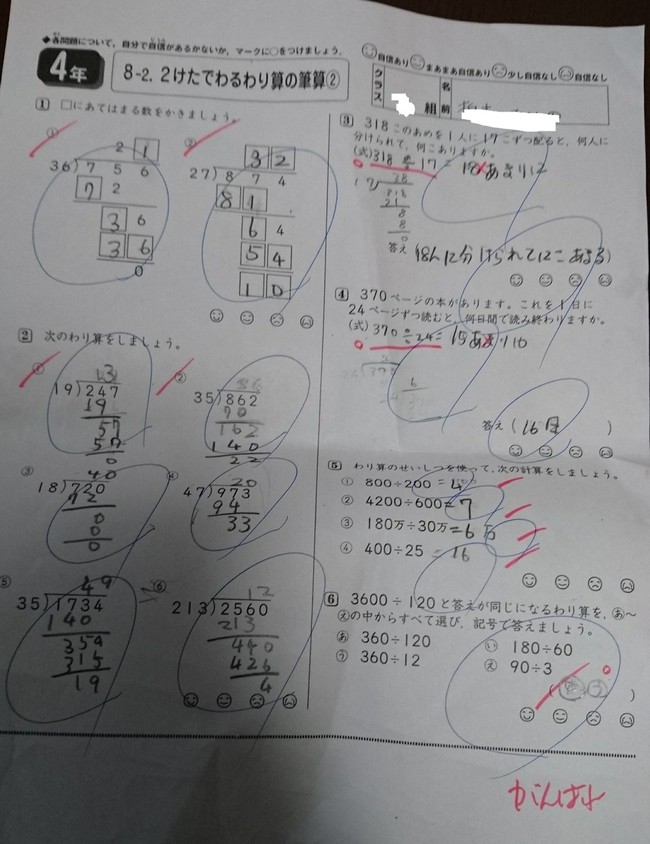 ◆各問題について、自分で自信があるかないか、マークに○をつけましょう。
自信あり まあまあ自信あり 少し自信なし 自信なし
4年
8-2. 2けたでわるわり算の筆算②
クラス 組 名前
1 □にあてはまる数をかきましょう。
①
2 1
36)7 5 6
7 2
3 6
3 6
0
②
3 2
27)8 7 4
8 1
6 4
5 4
1 0
2 次のわり算をしましょう。
①
13
19)247
19
57
57
0
②
35)862
70
162
140
22
③
40
18)720
72
0
0
0
④
20
47)973
94
33
⑤
49
35)1734
140
315
19
⑥
12
213)2560
213
426
4
3 318このあめを1人に17こずつ配ると、何人に
分けられて、何こありますか。
(式)318÷17= 18あまり12
答え (18人に分けられて12こあまる)
4 370ページの本があります。これを1日に
24ページずつ読むと、何日間で読み終わりますか。
(式)370÷24= 15あまり10
答え (16日 )
5 わり算のせいしつを使って、次の計算をしましょう。
① 800÷200=4
② 4200÷600=7
③ 180万÷30万=6万
④ 400÷25=16
6 3600÷120と答えが同じになるわり算を、あ~
えの中からすべて選び、記号で答えましょう。
あ 360÷120 い 180÷60
う 360÷12 え 90÷3
がんばれ